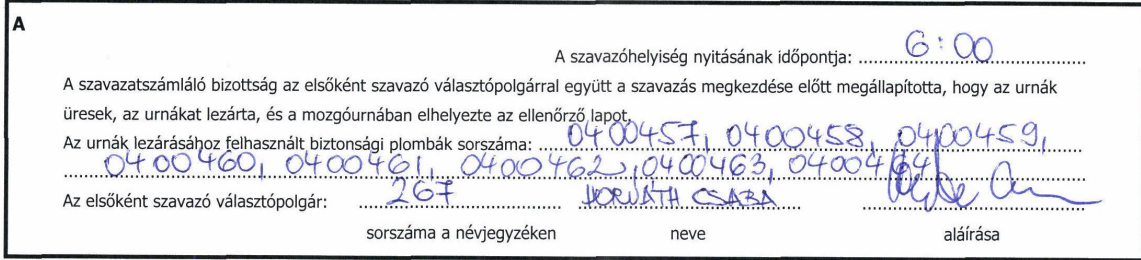 A
A szavazóhelyiség nyitásának időpontja: 6:00
A szavazatszámláló bizottság az elsőként szavazó választópolgárral együtt a szavazás megkezdése előtt megállapította, hogy az urnák
üresek, az urnákat lezárta, és a mozgóurnában elhelyezte az ellenőrző lapot.
Az urnák lezárásához felhasznált biztonsági plombák sorszáma: 0400457, 0400458, 0400459,
0400460, 0400461, 0400462, 0400463, 0400464
Az elsőként szavazó választópolgár: 267 HORVÁTH CSABA
sorszáma a névjegyzéken neve aláírása